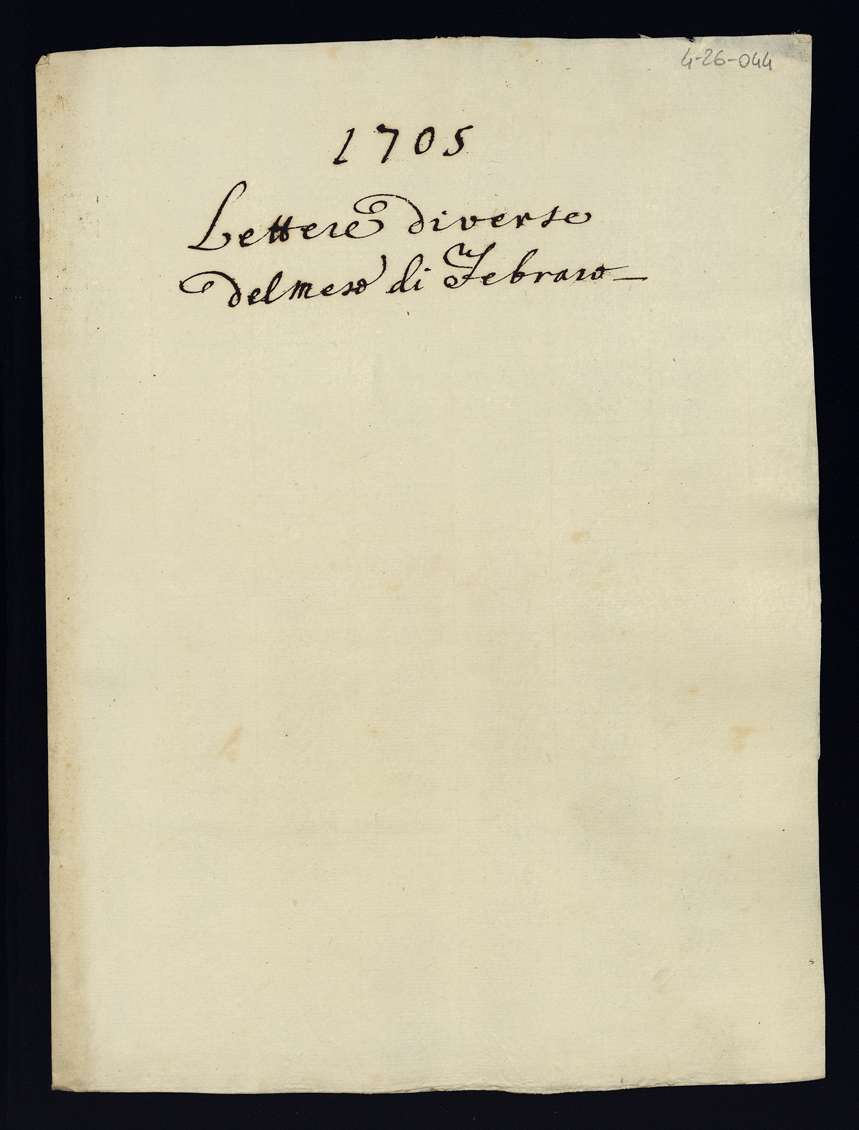 4-26-044
1705
Lettere diverse
Del mese di Febraro